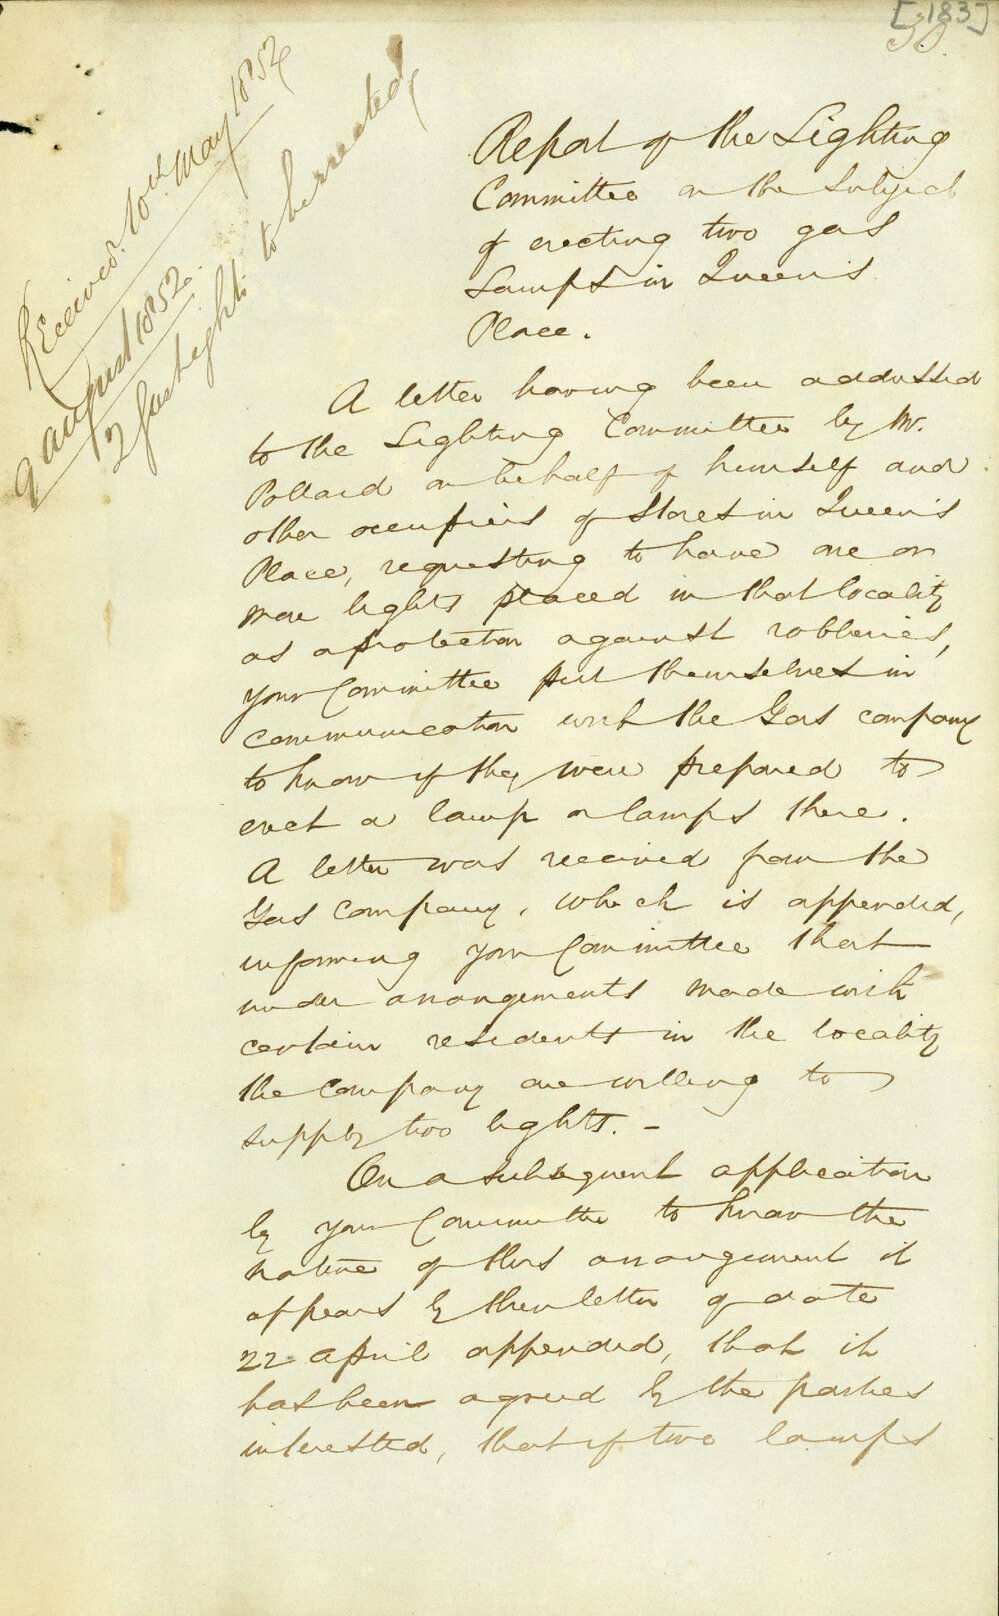 [183]
30.
Received. 10th May 1852
9 August 1852.
2 gas lights to be erected
Report of the Lighting
Committee on the Subject
of erecting two gas
Lamps in Queen's
Place.
A letter having been addressed
to the Lighting Committee by Mr.
Pollard on behalf of himself and
other occupiers of Stores in Queen's
Place, requesting to have one or
more lights placed in that locality
as a protection against robberies,
your Committee put themselves in
communication with the Gas company
to know if they were prepared to
erect a lamp or lamps there.
A letter was received from the
Gas Company, which is appended,
informing your Committee that
under arrangements made with
certain residents in the locality
the Company are willing to
supply two lights. –
On a subsequent application
by your Committee to know the
nature of this arrangement it
appears by their letter of date
22 April appended, that it
has been agreed by the parties
interested, that if two lamps